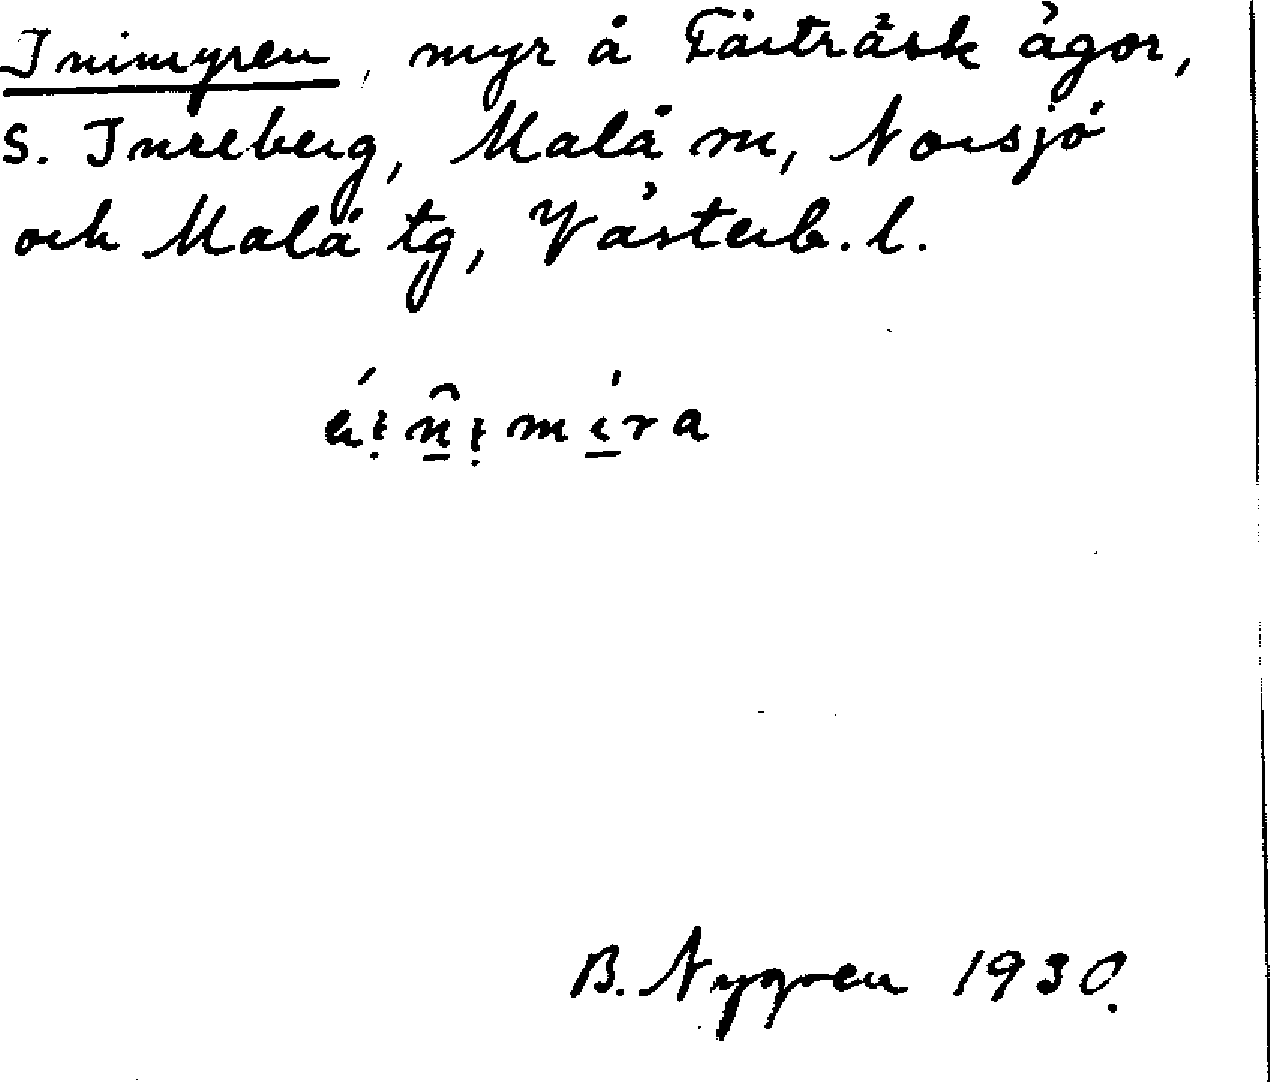 Inimyren, myr å Tärträsk ägor,
S. Inreberg, Malå sn, Norsjö
och Malå tg, Västerb. l.
B. Nygren 1930.